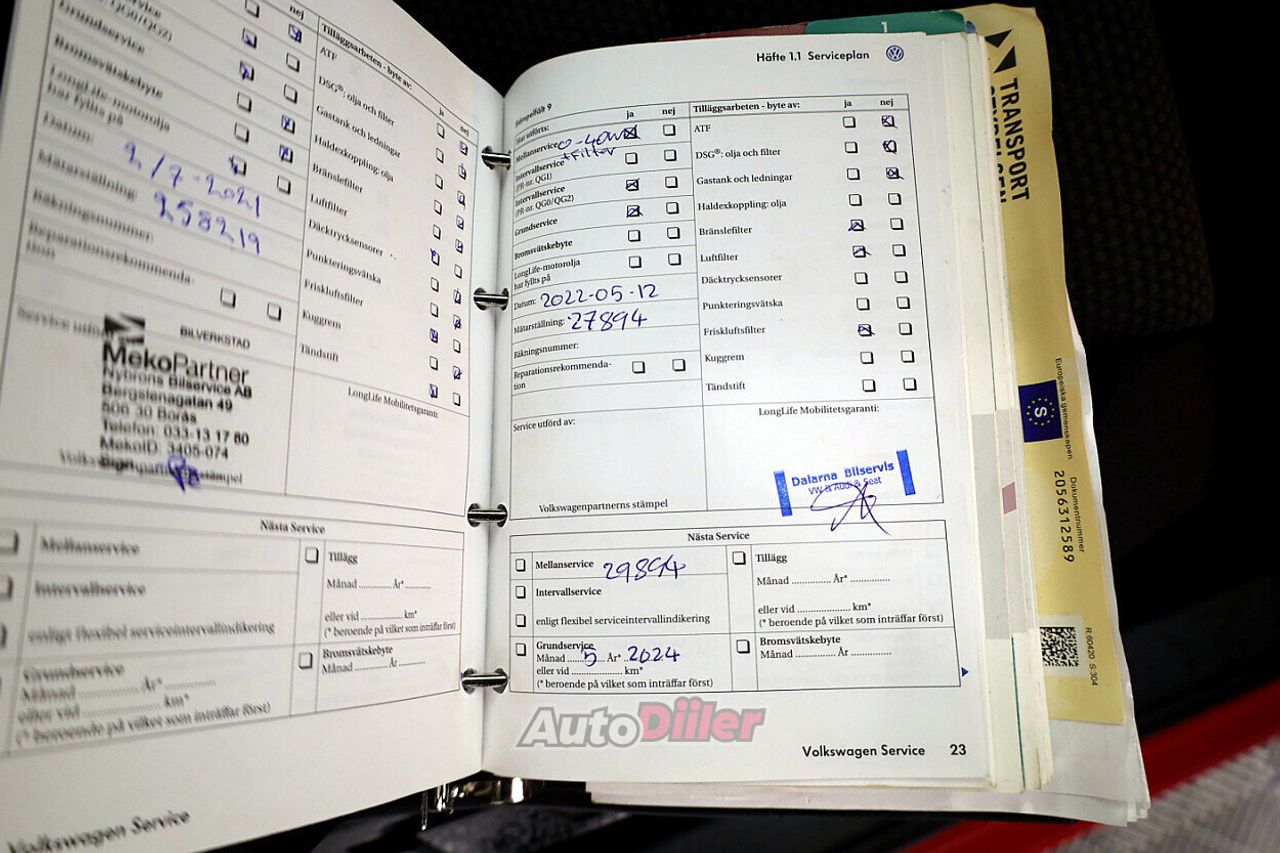 nej
QG0/QG2)
Grundservice
Bromsvätskebyte
LongLife-motorolja
har fyllts på
Datum:
2/7-2021
Mätarställning:
258219
Räkningsnummer:
Reparationsrekommenda-
tion
BILVERKSTAD
MekoPartner
Nybrons Bilservice AB
Bergslenagatan 49
506 30 Borås
Telefon: 033-13 17 80
MekoID: 3405-074
Tilläggsarbeten - byte av:
ja nej
ATF
DSG®: olja och filter
Gastank och ledningar
Haldexkoppling: olja
Bränslefilter
Luftfilter
Däcktrycksensorer
Punkteringsvätska
Friskluftsfilter
Kuggrem
Tändstift
LongLife Mobilitetsgaranti:
Nästa Service
Mellanservice
Intervallservice
enligt flexibel serviceintervallindikering
Grundservice
Månad ............ År* ............
eller vid ............ km*
(* beroende på vilket som inträffar först)
Tillägg
Månad ............ År* ............
eller vid ............ km*
(* beroende på vilket som inträffar först)
Bromsvätskebyte
Månad ............ År ............
Volkswagen Service
Häfte 1.1 Serviceplan
Stämpelfält 9
Har utförts:
ja nej
Mellanservice 0-40W
+Filter
Intervallservice
(PR-nr. QG1)
Intervallservice
(PR-nr. QG0/QG2)
Grundservice
Bromsvätskebyte
LongLife-motorolja
har fyllts på
Datum: 2022-05-12
Mätarställning: 27894
Räkningsnummer:
Reparationsrekommenda-
tion
Service utförd av:
Volkswagenpartnerns stämpel
Tilläggsarbeten - byte av:
ja nej
ATF
DSG®: olja och filter
Gastank och ledningar
Haldexkoppling: olja
Bränslefilter
Luftfilter
Däcktrycksensorer
Punkteringsvätska
Friskluftsfilter
Kuggrem
Tändstift
LongLife Mobilitetsgaranti:
Dalarna Bilservis
VW & Audi & Seat
Nästa Service
Mellanservice 29894
Intervallservice
enligt flexibel serviceintervallindikering
Grundservice
Månad 5 År* 2024
eller vid ............ km*
(* beroende på vilket som inträffar först)
Tillägg
Månad ............ År* ............
eller vid ............ km*
(* beroende på vilket som inträffar först)
Bromsvätskebyte
Månad ............ År ............
Volkswagen Service 23
AutoDiiler
1
TRANSPORT
STYRELSEN
S
Europeiska gemenskapen
Dokumentnummer
2056312589
R 60420 S 304